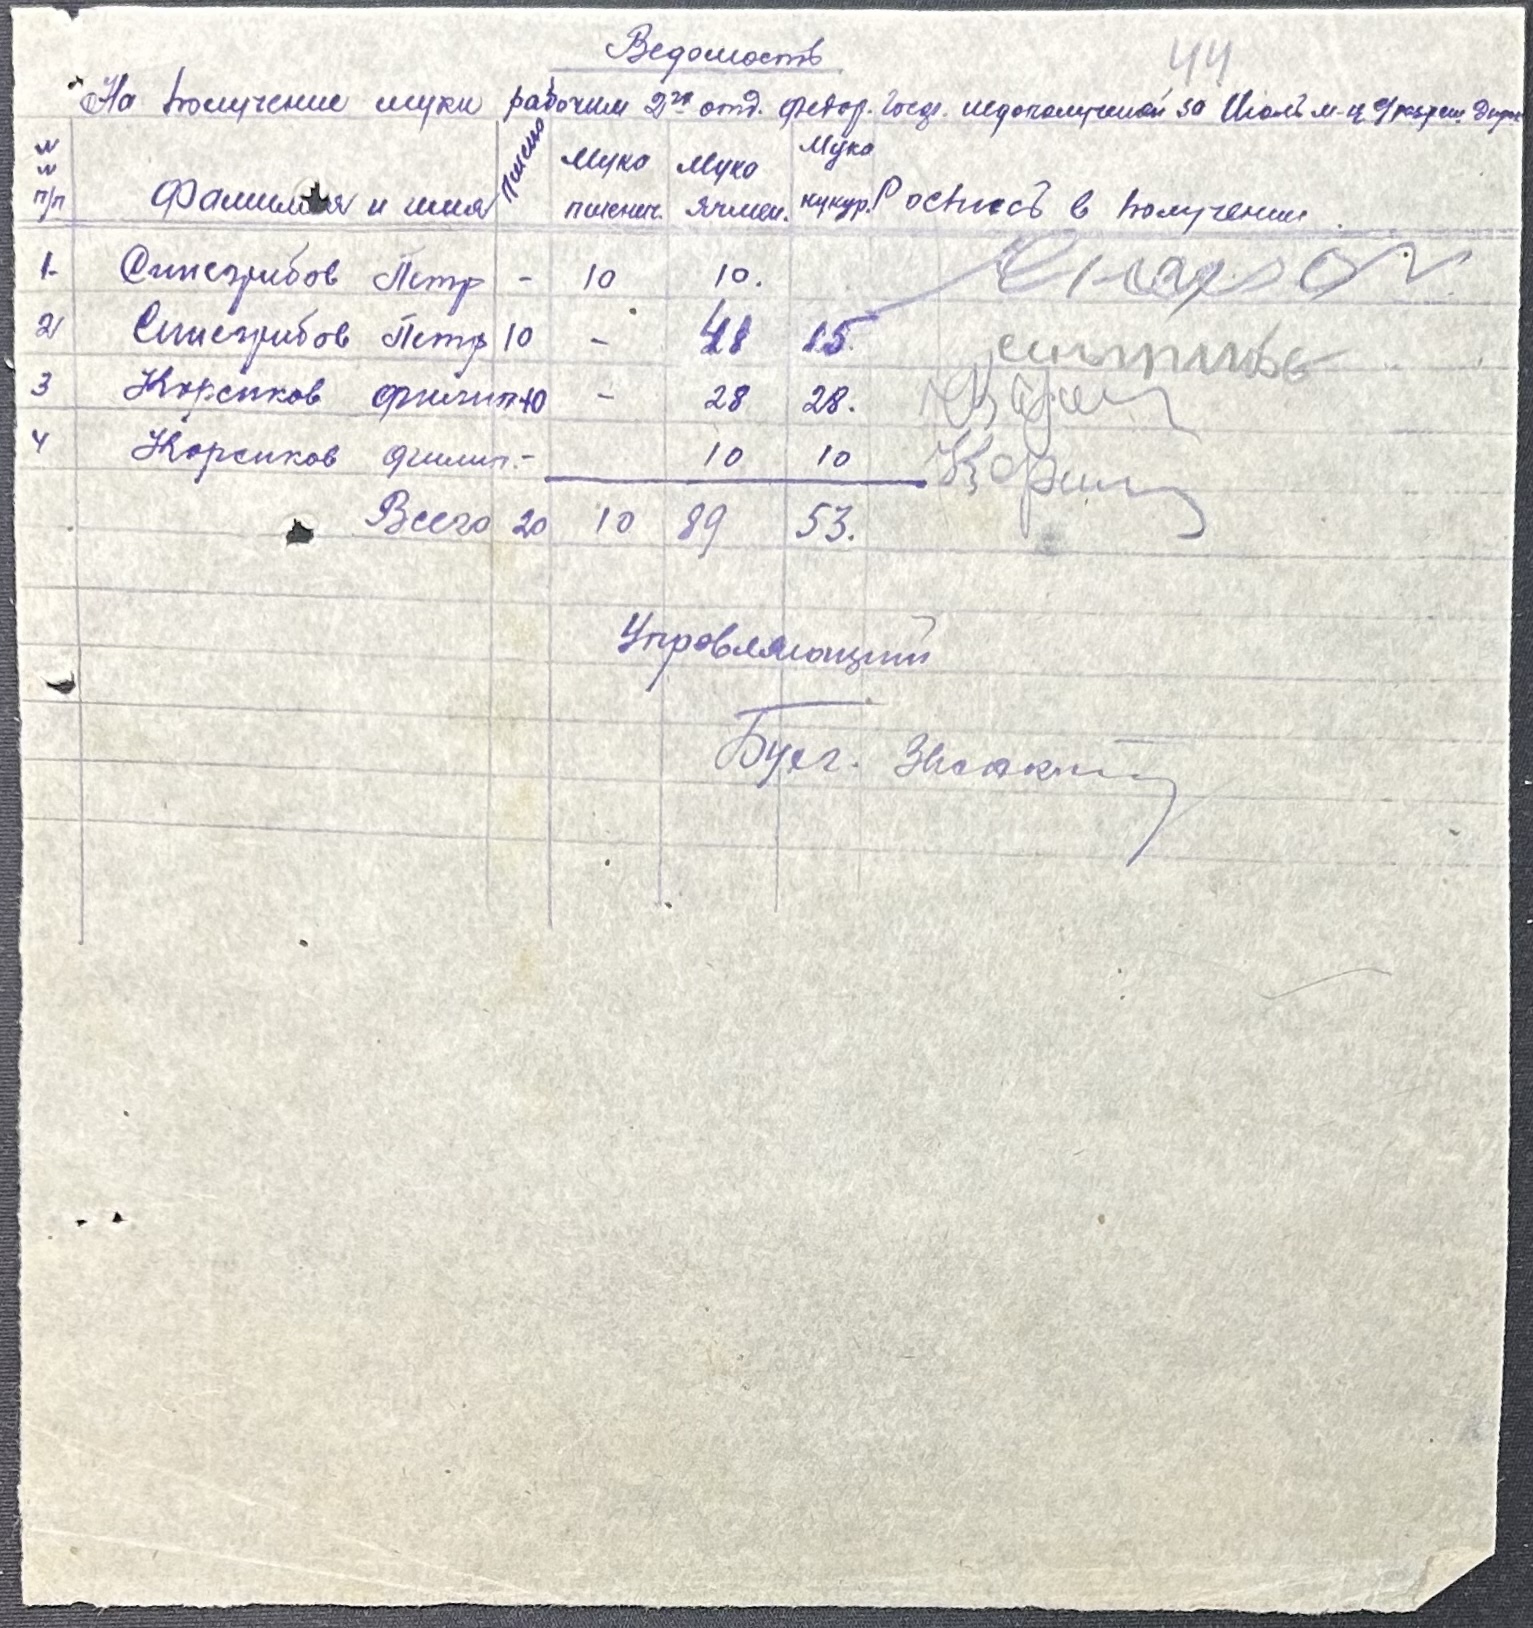 44
Ведомость
На получение муки рабочим 2го отд. Федор. Госд. недополученой за Июль м-ц
№ № п/п Фамилия и имя Пшено Мука пшенич. Мука Ячмен. Мука кукур. Роспись в получении
1. Синегрибов Петр - 10 10.
2 Синегрибов Петр 10 - 41 15.
3 Корсиков Филип 10 - 28 28.
4 Корсиков Филип. - 10 10
Всего 20 10 89 53.
Управляющий
Бухг.